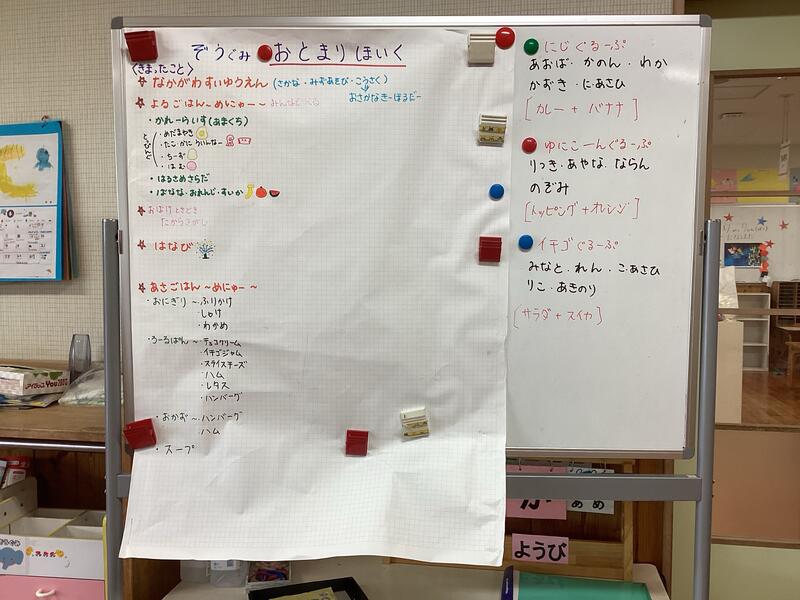 ぞうぐみ おとまりほいく
〈きまったこと〉
☆ なかがわすいゆうえん (さかな・みずあそび・こうさく)
おさかなきーほるだー
☆ よるごはん~めにゅー~ みんなでつくる
・かれーらいす(あまくち)
とっぴんぐ
・めだまやき
・たこ・かに ういんなー
・ちーず
・はむ
・はるさめさらだ
・ばなな・おれんじ・すいか
☆ おばけときどき
たからさがし
☆ はなび
☆ あさごはん ~めにゅー~
・おにぎり~・ふりかけ
・しゃけ
・わかめ
・ろーるぱん~・チョコクリーム
・イチゴジャム
・スライスチーズ
・ハム
・レタス
・ハンバーグ
・おかず~・ハンバーグ
・ハム
・スープ
にじぐるーぷ
あおば・かのん・わか
かおき・に・あさひ
[カレー + バナナ]
ゆにこーんぐるーぷ
りっき・あやな・ならん
のぞみ
[トッピング+オレンジ]
イチゴぐるーぷ
みなと・れん・こ・あさひ
りこ・あきのり
[サラダ + スイカ]
か
あめ
ようび